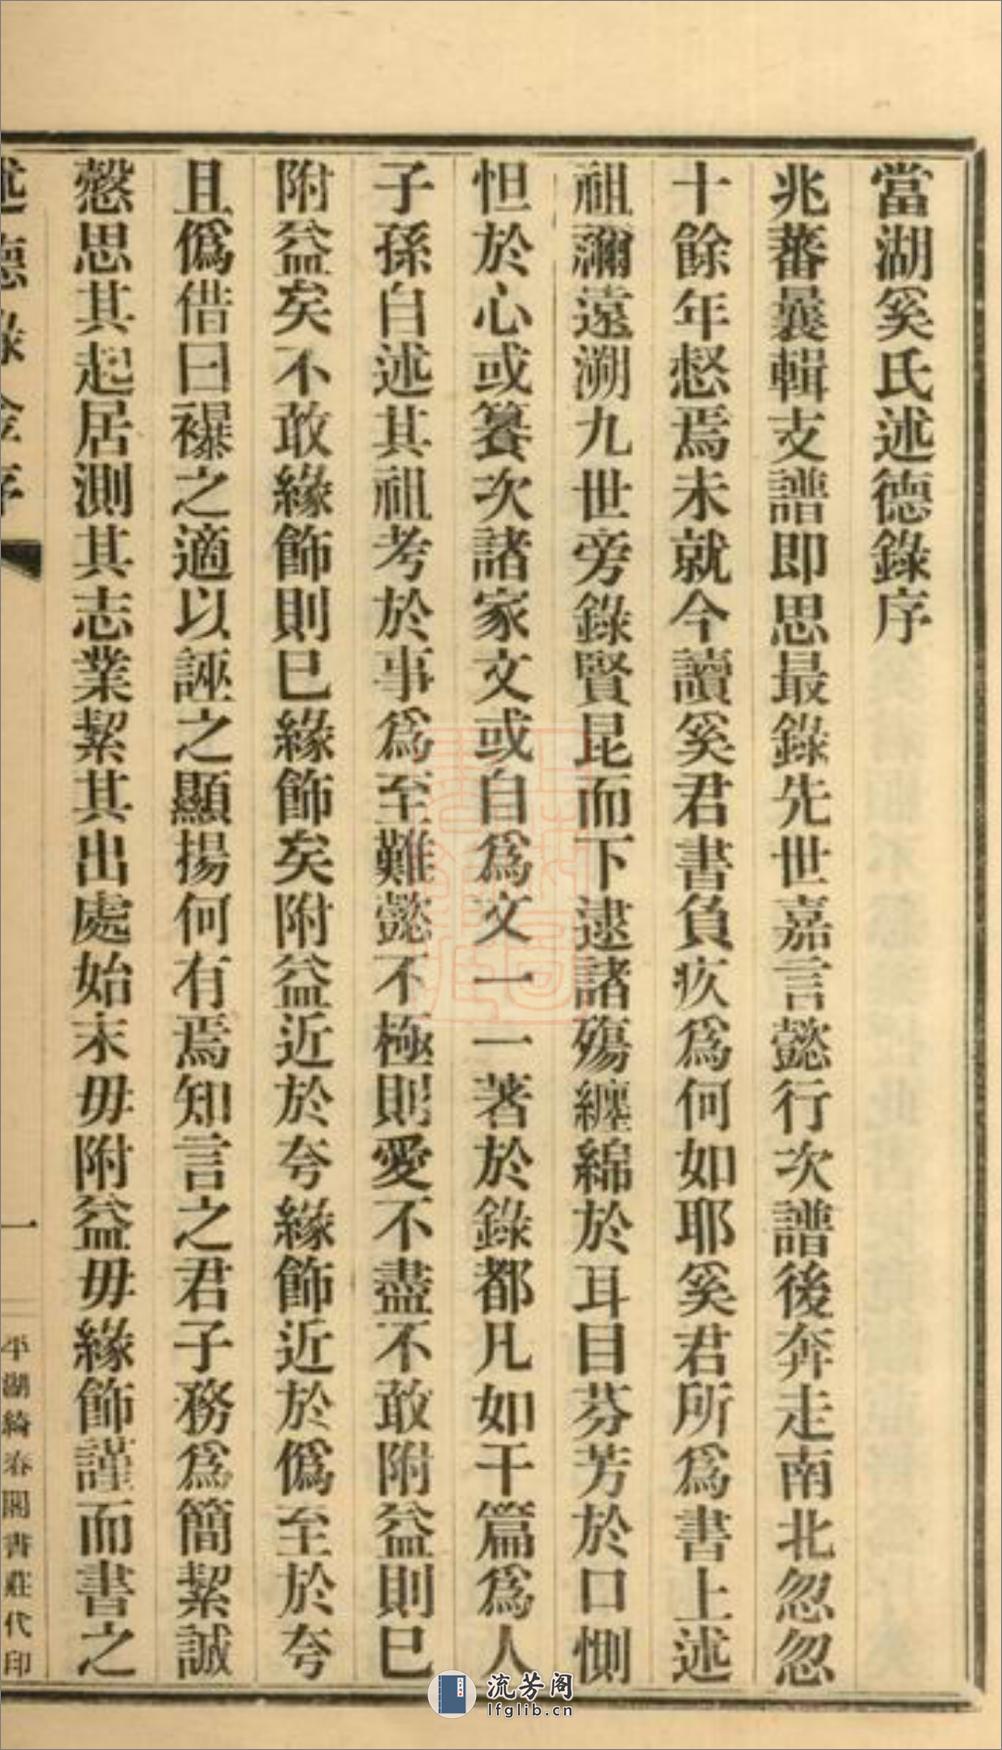 當湖奚氏述德錄序
兆蕃曩輯支譜即思最錄先世嘉言懿行次譜後奔走南北忽忽
十餘年惄焉未就今讀奚君書負疚爲何如耶奚君所爲書上述
祖禰遠溯九世旁錄賢昆而下逮諸殤纏綿於耳目芬芳於口惻
怛於心或簒次諸家文或自爲文一一著於錄都凡如干篇爲人
子孫自述其祖考於事爲至難懿不極則愛不盡不敢附益則已
附益矣不敢緣飾則已緣飾矣附益近於夸緣飾近於僞至於夸
且僞借曰襮之適以誣之顯揚何有焉知言之君子務爲簡絜誠
愨思其起居測其志業絜其出處始末毋附益毋緣飾謹而書之
述德錄金序
一
平湖綺春閣書莊代印
流芳阁
lfglib.cn